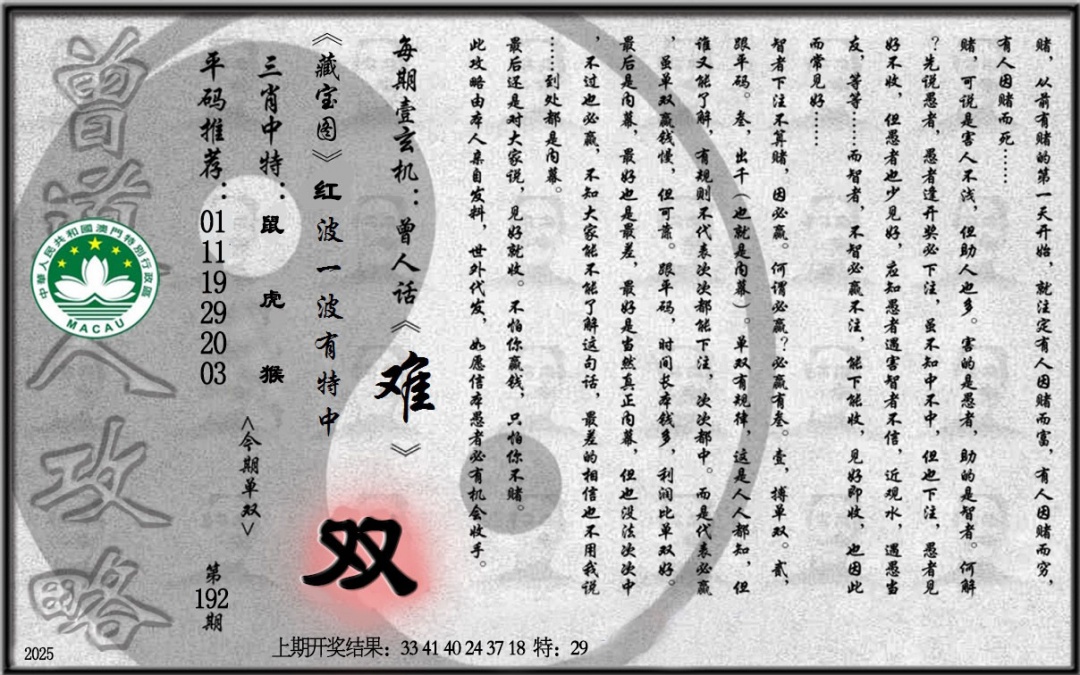 赌，从前有赌的第一天开始，就注定有人因赌而富，有人因赌而穷，
有人因赌而死……
赌，可说是害人不浅，但助人也多。害的是愚者，助的是智者。何解
？先说愚者，愚者逢开奖必下注，虽不知中不中，但也下注，愚者见
好不收，但愚者也少见好，应知愚者遇害智者不信，近观水，遇愚当
友，等等……而智者，不智必赢不注，能下能收，见好即收，也因此
而常见好……
智者下注不算赌，因必赢。何谓必赢？必赢有叁。壹，搏单双。贰，
跟平码。叁，出千（也就是内幕）。单双有规律，这是人人都知，但
谁又能了解，有规则不代表次次都能下注，次次都中。而是代表必赢
，虽单双赢钱慢，但可靠。跟平码，时间长本钱多，利润比单双好。
最后是内幕，最好也是最差，最好是当然真正内幕，但也没法次次中
，不过也必赢，不知大家能不能了解这句话，最差的相信也不用我说
……到处都是内幕。
最后还是对大家说，见好就收。不怕你赢钱，只怕你不赌。
此攻略由本人亲自发料，世外代发，如愿信本愚者必有机会收手。
每期壹玄机：曾人话《难》
《藏宝图》红波一波有特中
双
三肖中特：鼠 虎 猴
<今期单双>
平码推荐：01 11 19 29 20 03
第192期
曾道人攻略
中華人民共和國澳門特別行政區
MACAU
2025
上期开奖结果：33 41 40 24 37 18 特：29